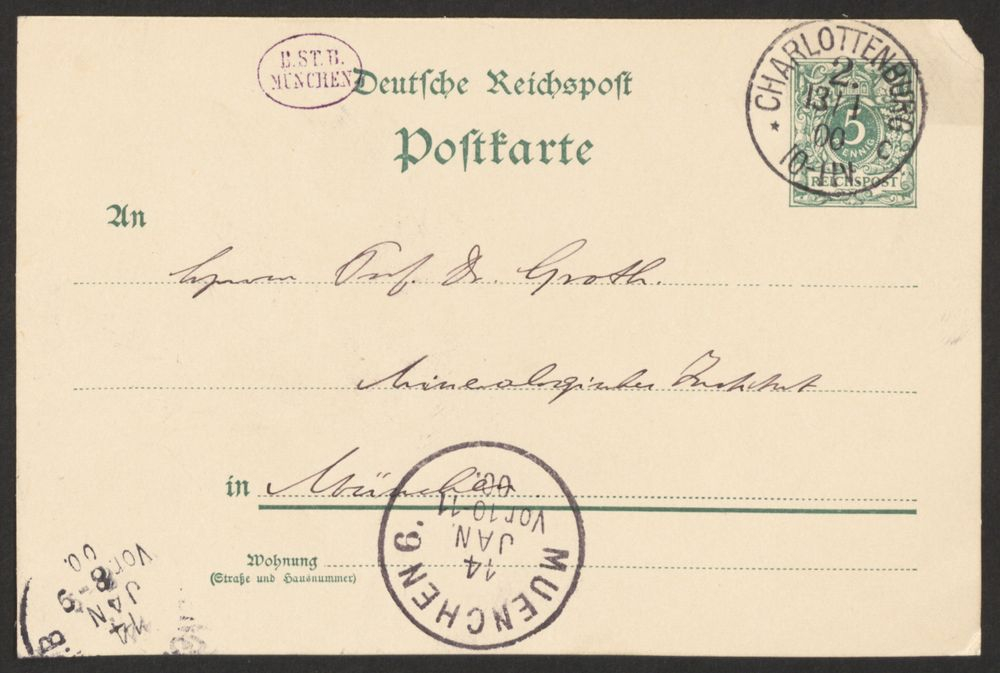 B.ST.B.
MÜNCHEN
Deutsche Reichspost
Postkarte
CHARLOTTENBURG
2.
13/1
00
10-11N
* c
5
PFENNIG
REICHSPOST
An
Herrn Prof. Dr. Groth.
Mineralogisches Institut
in München
MUENCHEN 9.
14
JAN.
Vor.10-11
00.
Wohnung
(Straße und Hausnummer)
B
14
JAN
Vor.
8-9
00.